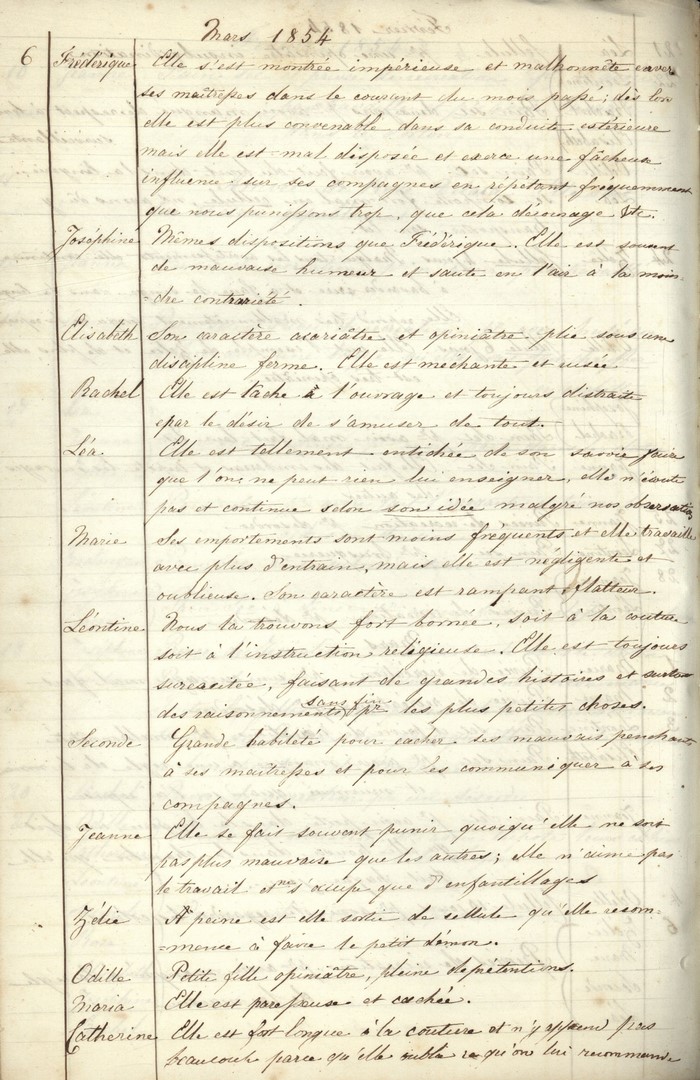 Mars 1854
6 Frédérique Elle s'est montrée impérieuse et malhonnête enver
ses maîtresses dans le courant du mois passé; dès lors
elle est plus convenable dans sa conduite extérieure
mais elle est mal disposée et exerce une fâcheuse
influence sur ses compagnes en répétant fréquemment
que nous punissons trop, que cela décourage etc.
Joséphine Mêmes dispositions que Frédérique. Elle est souvent
de mauvaise humeur et saute en l'air à la moin
=dre contrariété.
Elisabeth Son caractère acariâtre et opiniâtre plie sous une
discipline ferme. Elle est méchante et rusée
Rachel Elle est lâche à l'ouvrage et toujours distraite
par le désir de s'amuser de tout.
Léa Elle est tellement entichée de son savoir faire
que l'on ne peut rien lui enseigner, elle n'écoute
pas et continue selon son idée malgré nos observations
Marie Ses emportements sont moins fréquents et elle travaille
avec plus d'entrain, mais elle est négligente et
oublieuse. Son caractère est rampant & flatteur.
Léontine Nous la trouvons fort bornée, soit à la couture
soit à l'instruction religieuse. Elle est toujours
surexcitée, faisant de grandes histoires et surtout
des raisonnements sans fin pr les plus petites choses.
Seconde Grande habileté pour cacher ses mauvais penchants
à ses maîtresses et pour les communiquer à ses
compagnes.
Jeanne Elle se fait souvent punir quoiqu'elle ne soit
pas plus mauvaise que les autres; elle n'aime pas
le travail et ne s'occupe que d'enfantillages
Zélie A peine est elle sortie de cellule qu'elle recom-
=mence à faire le petit démon.
Odille Petite fille opiniâtre, pleine de prétentions.
Maria Elle est paresseuse et cachée.
Catherine Elle est fort longue à la couture et n'y apprend pas
beaucoup parce qu'elle oublie ce qu'on lui recommande